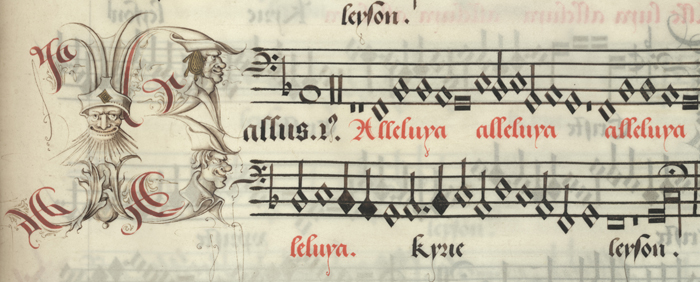 leyson.
Bassus.i9. Alleluya alleluya alleluya
leluya. kyrie leyson.